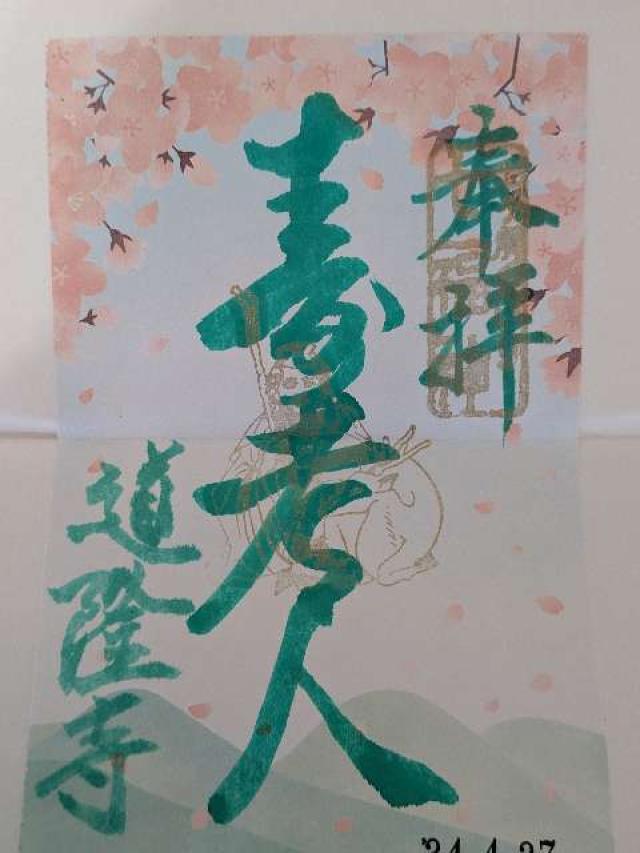 奉拝
寿老人
道隆寺
'24.4.27